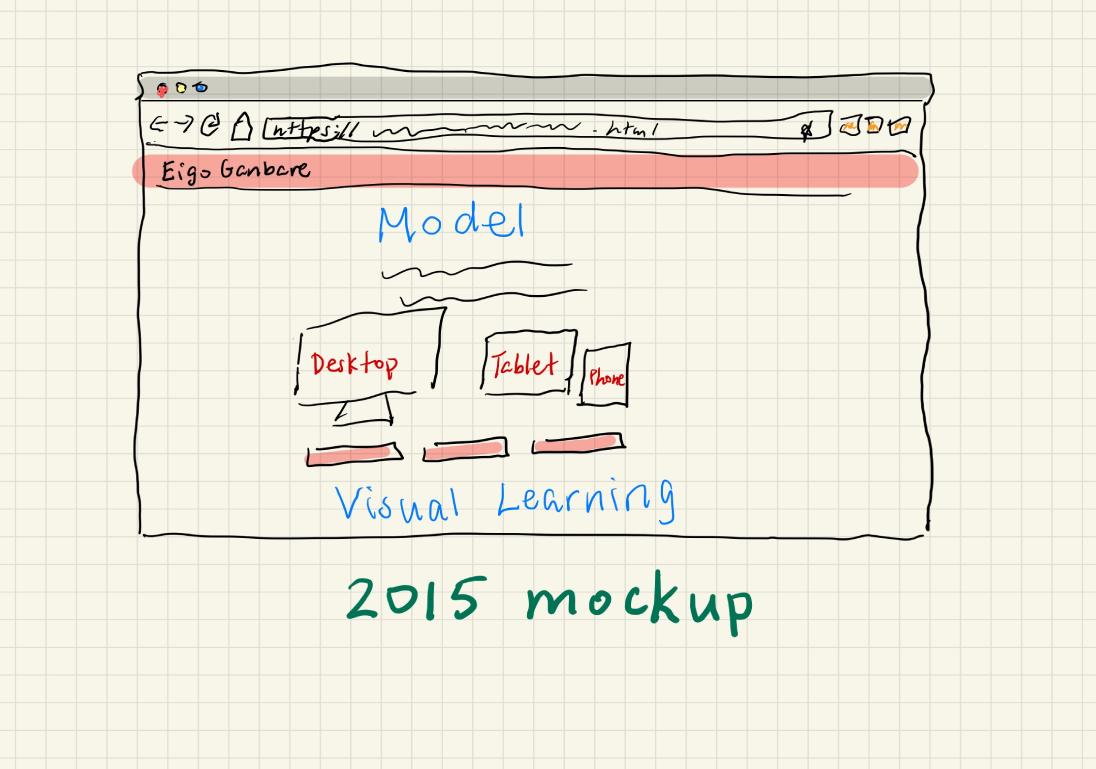 .html
Eigo Ganbare
Model
Desktop
Tablet
Phone
Visual Learning
2015 mockup